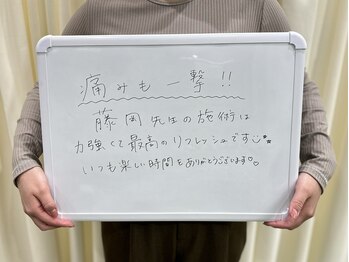 痛みも一撃!!
藤岡先生の施術は
力強くて最高のリフレッシュです
いつも楽しい時間をありがとうございます♡